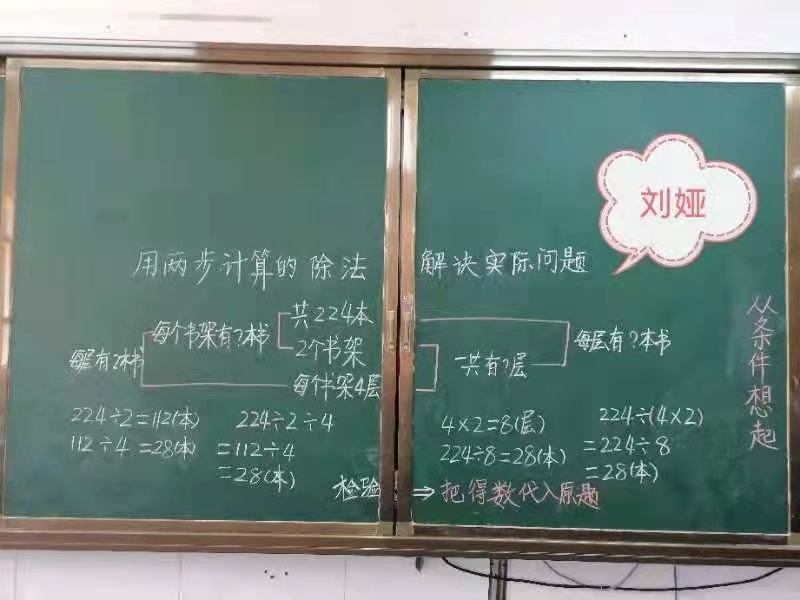 刘娅
用两步计算的除法 解决实际问题
共224本
每个书架有?本书
2个书架
每层有?本书
每个书架4层
每层有?本书
一共有?层
从条件想起
224÷2=112(本)
112÷4=28(本)
224÷2÷4
=112÷4
=28(本)
4×2=8(层)
224÷8=28(本)
224÷(4×2)
=224÷8
=28(本)
检验 ⇒ 把得数代入原题